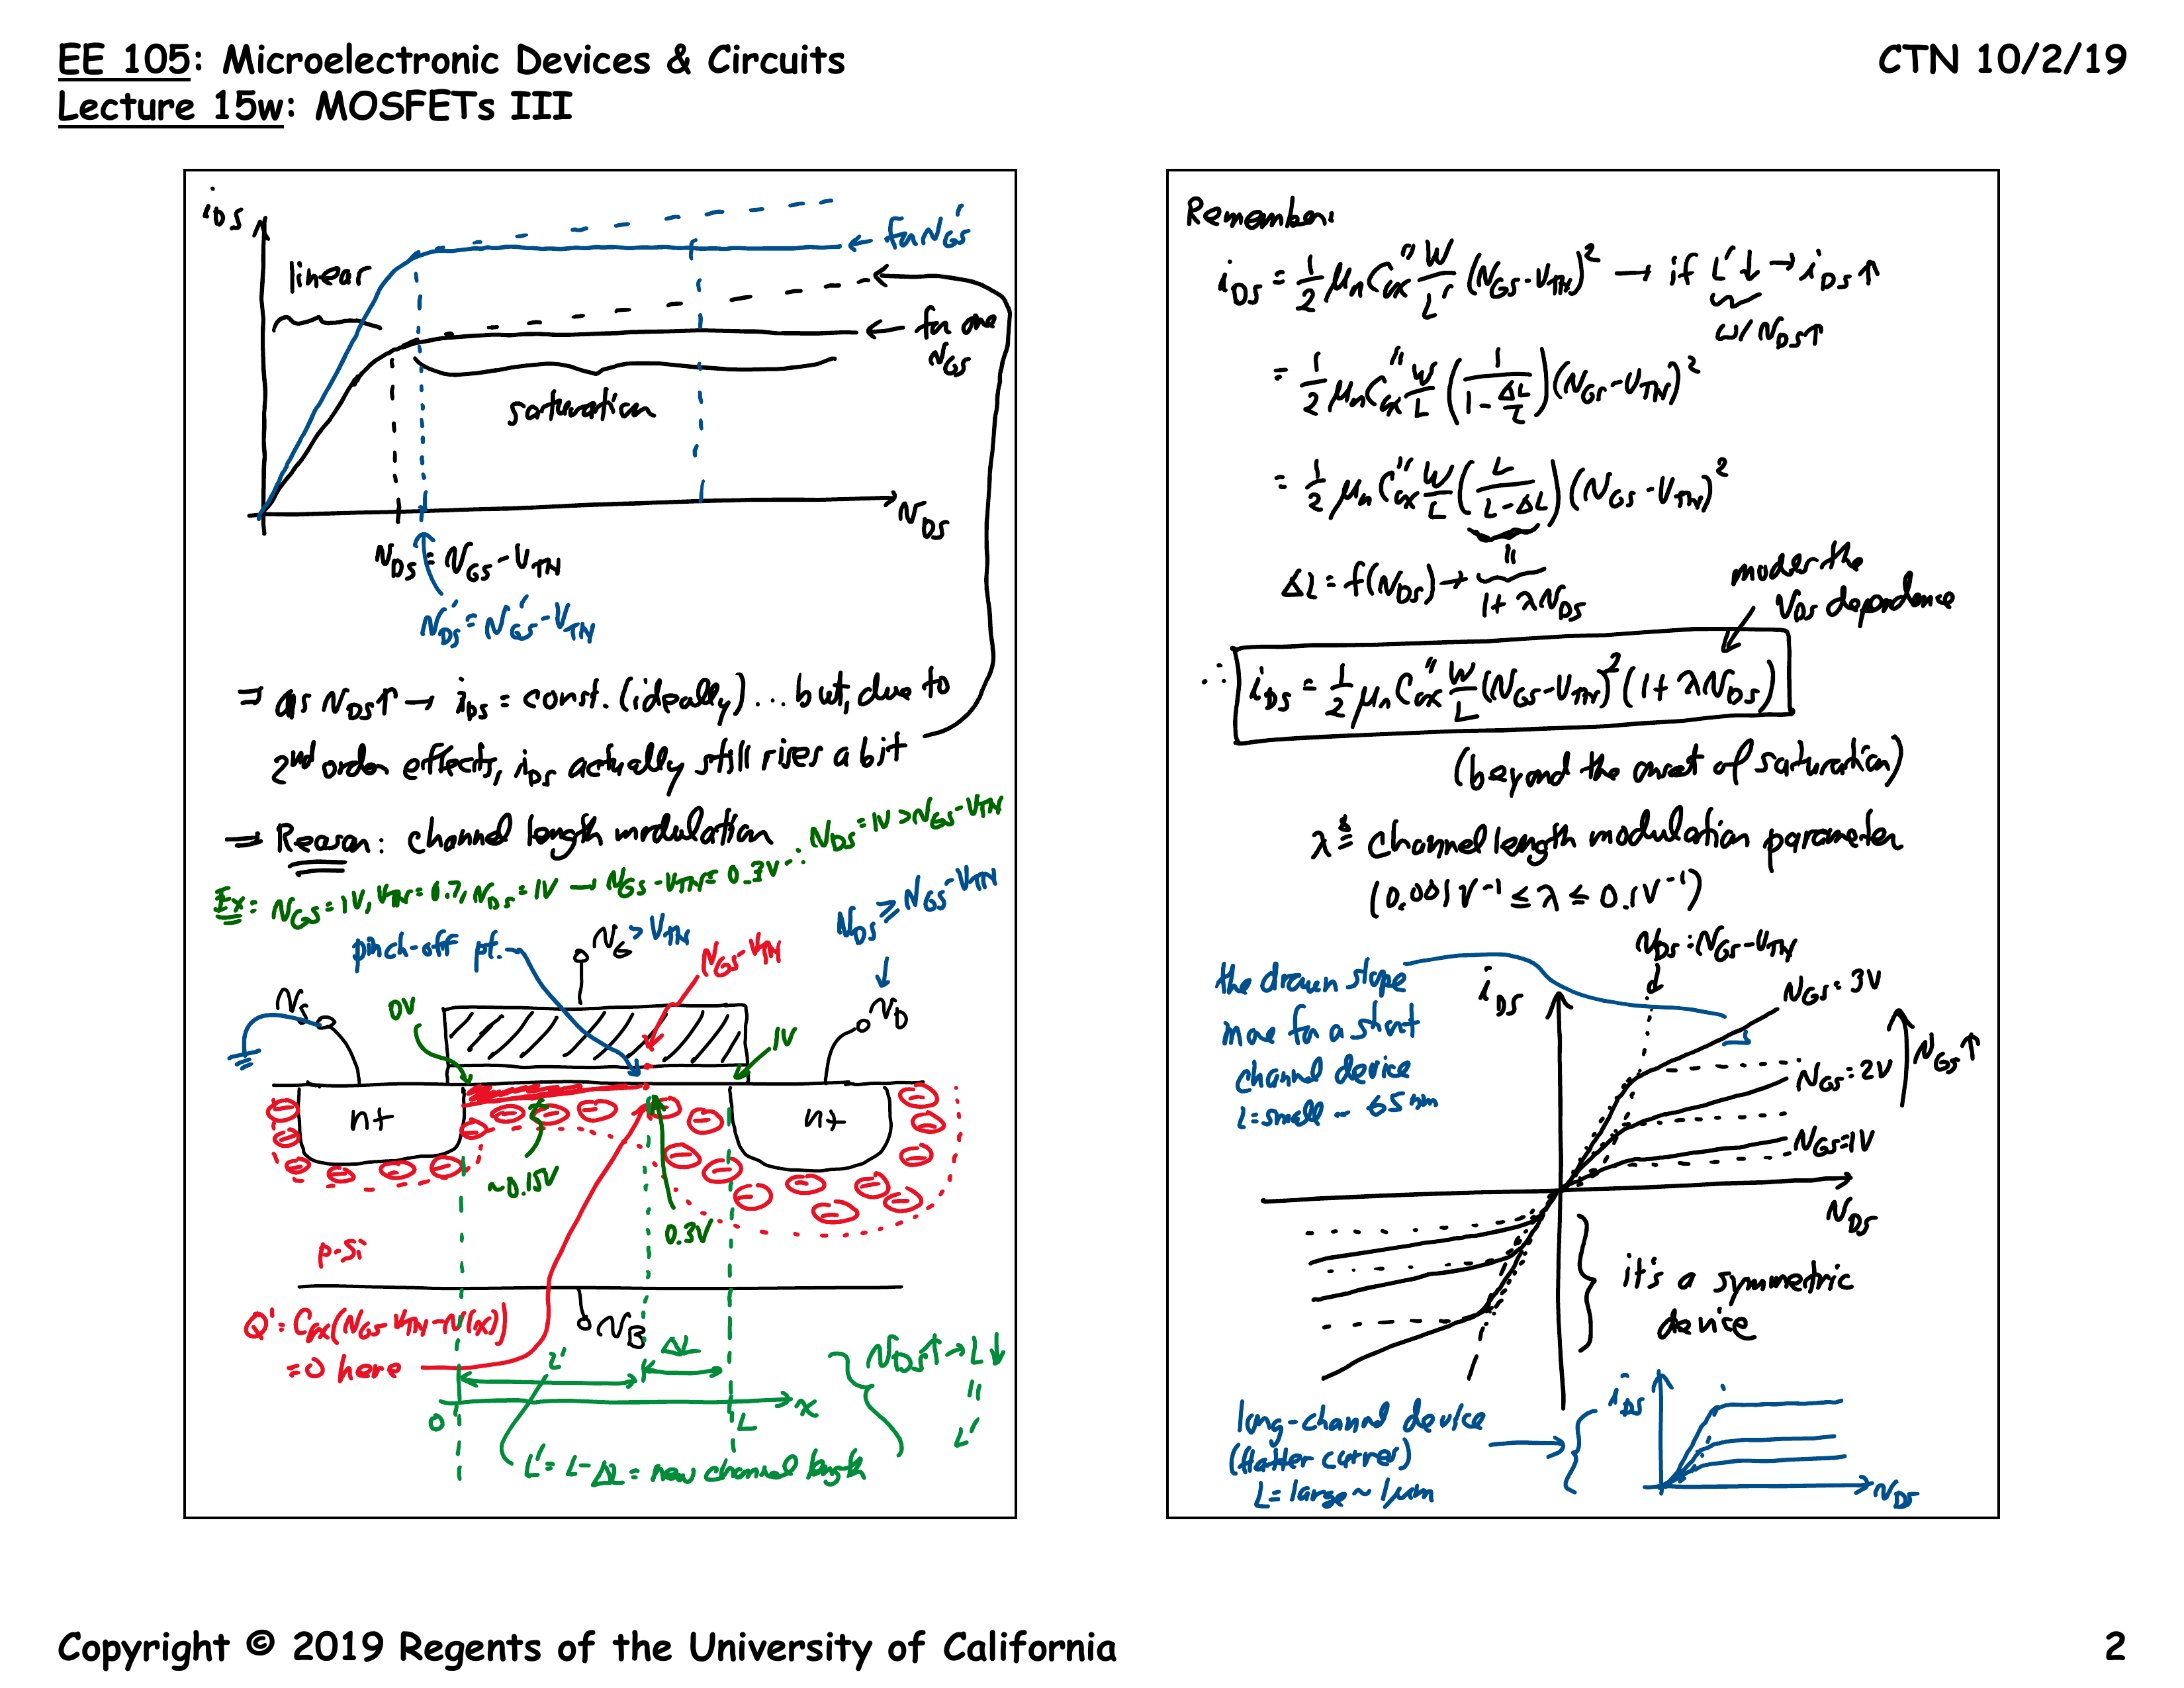 EE 105: Microelectronic Devices & Circuits
CTN 10/2/19
Lecture 15w: MOSFETs III
iDS
linear
← for vGS'
← for one
vGS
saturation
vDS
vDS = vGS - VTN
vDS' = vGS' - VTN
⇒ as vDS↑ → iDS = const. (ideally) ... but, due to
2nd order effects, iDS actually still rises a bit
⇒ Reason: channel length modulation
Ex: vGS = 1V, VTN = 0.7, vDS = 1V → vGS - VTN = 0.3V ∴ vDS = 1V > vGS - VTN
pinch-off pt.
vG > VTN
vGS - VTN
vDS ≥ vGS - VTN
vS
0V
1V
vD
n+
n+
~0.15V
0.3V
p-Si
Q' = Cox(vGS - VTN - v(x))
= 0 here
vB
L'
ΔL
vDS↑ → L↓
"
L'
0
L
x
L' = L - ΔL = new channel length
Remember:
iDS = 1/2 μn Cox" W/L' (vGS - VTN)² → if L'↓ → iDS↑
w/ vDS↑
= 1/2 μn Cox" W/L (1/(1 - ΔL/L)) (vGS - VTN)²
= 1/2 μn Cox" W/L (L/(L - ΔL)) (vGS - VTN)²
"
ΔL = f(vDS) → 1 + λvDS
models the
VDS dependence
∴ iDS = 1/2 μn Cox" W/L (vGS - VTN)² (1 + λvDS)
(beyond the onset of saturation)
λ ≜ channel length modulation parameter
(0.001V⁻¹ ≤ λ ≤ 0.1V⁻¹)
vDS = vGS - VTN
the drawn slope
more for a short
channel device
L = small ~ 65nm
iDS
vGS = 3V
vGS = 2V
vGS↑
vGS = 1V
vDS
it's a symmetric
device
long-channel device
(flatter curves)
L = large ~ 1μm
iDS
vDS
Copyright © 2019 Regents of the University of California
2